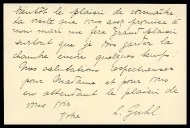 bientôt le plaisir de connaître
La visite que vous avez promise à
mon mari me fera grand plaisir
surtout que je dois garder la
chambre encore quelques temps
Mes salutations respectueuses
pour Madame et pour vous
en attendant le plaisir de
vous voir
Votre L. Guhl